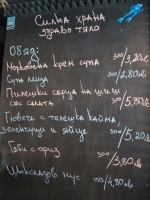 Силна храна
здраво тяло
Обяд:
Морковена крем супа 300/3,20лв
Супа леща 300/2,80лв
Пилешки сърца на шиш
със салата /5,80лв
Гювече с телешка кайма,
зеленчуци и яйце /5,20лв
Боб с ориз 300/3,80лв
Шоколадов мус /4,80лв